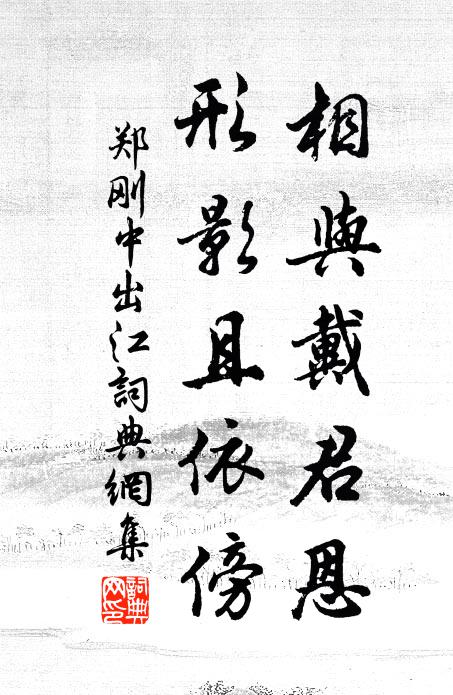 相與戴君恩
形影且依傍
郑刚中出江詞典網集
詞典
网印